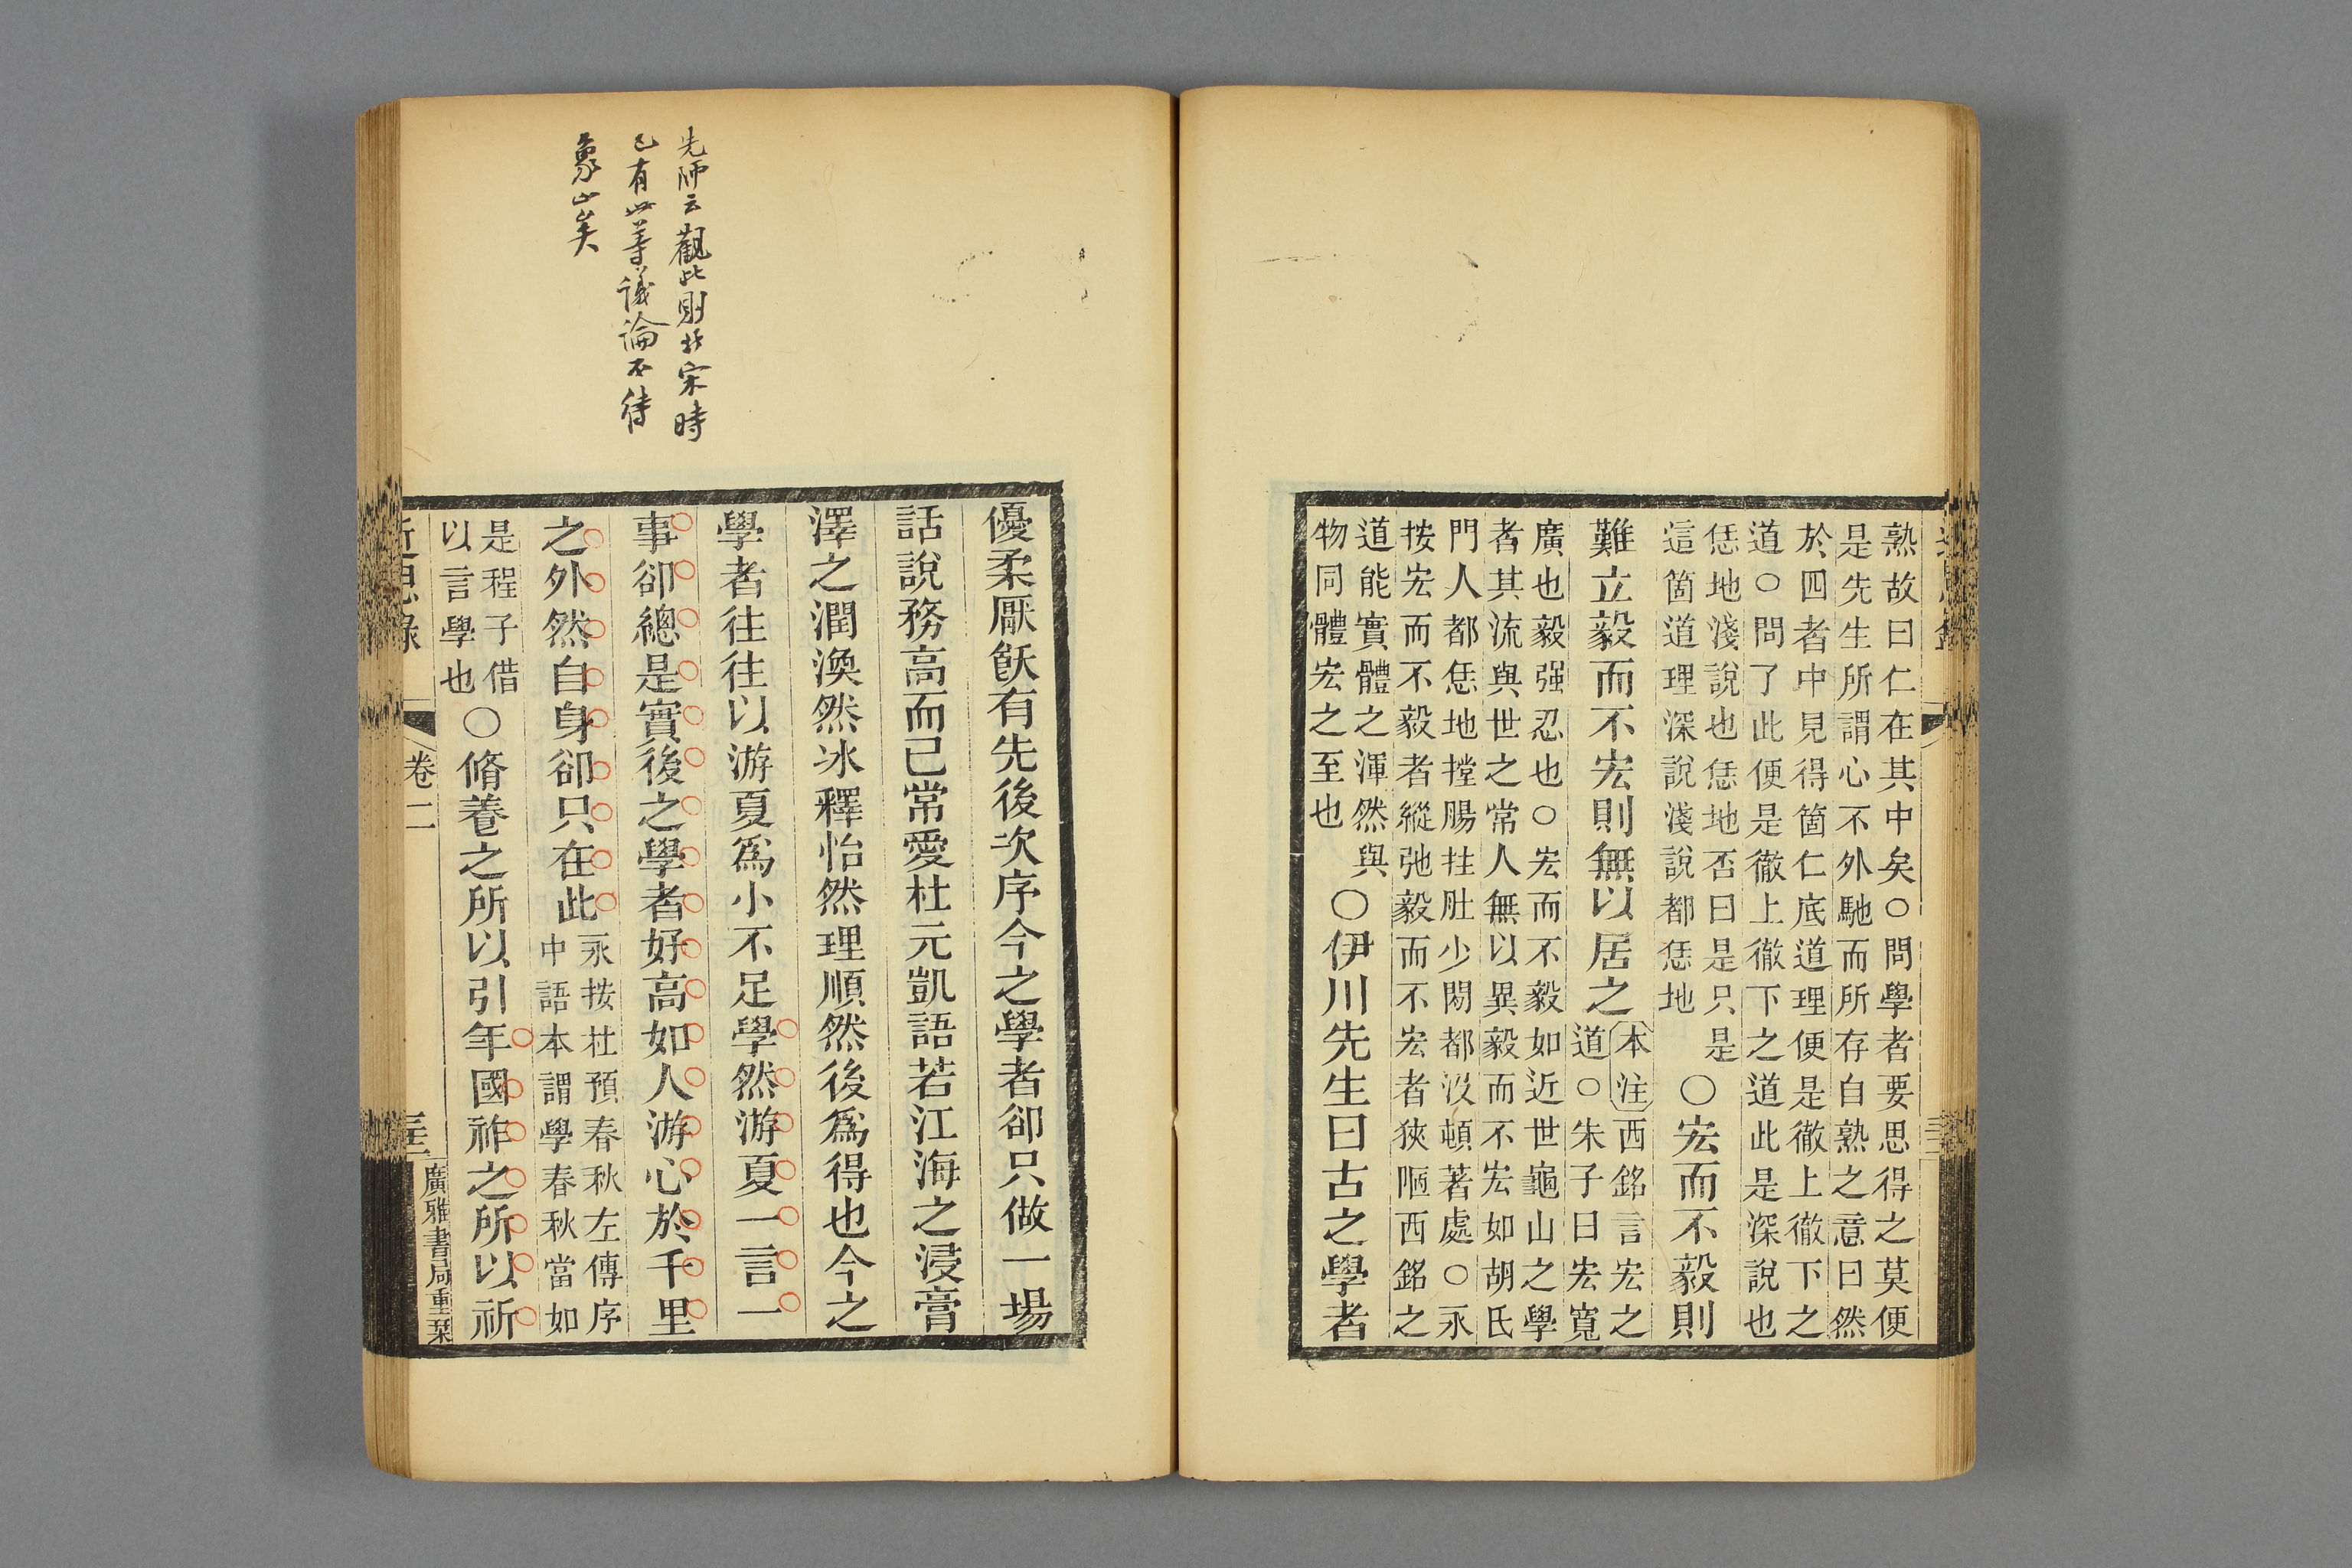 熟故曰仁在其中矣○問學者要思得之莫便
是先生所謂心不外馳而所存自熟之意曰然
於四者中見得箇仁底道理便是徹上徹下之
道○問了此便是徹上徹下之道此是深說也
恁地淺說也恁地否曰是只是
這箇道理深說淺說都恁地
○宏而不毅則
難立毅而不宏則無以居之
本注西銘言宏之
道○朱子曰宏寬
廣也毅强忍也○宏而不毅如近世龜山之學
者其流與世之常人無以異毅而不宏如胡氏
門人都恁地撑腸拄肚少閒都沒頓著處○永
按宏而不毅者縱弛毅而不宏者狹陋西銘之
道能實體之渾然與
物同體宏之至也
○伊川先生曰古之學者
先師云觀此則北宋時
已有此等議論不待
象山矣
優柔厭飫有先後次序今之學者卻只做一場
話說務高而已常愛杜元凱語若江海之浸膏
澤之潤渙然冰釋怡然理順然後爲得也今之
學者往往以游夏爲小不足學然游夏一言一
事卻總是實後之學者好高如人游心於千里
之外然自身卻只在此
永按杜預春秋左傳序
中語本謂學春秋當如
是程子借
以言學也
○脩養之所以引年國祚之所以祈
近思錄
卷二
廣雅書局重栞